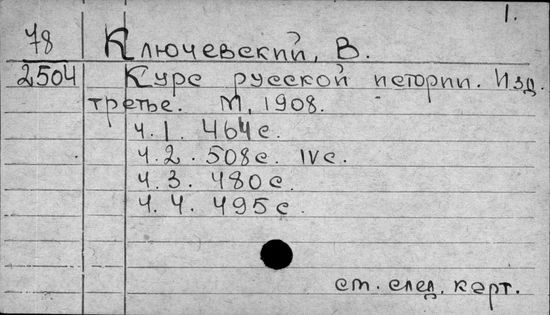 1.
78 Ключевский, В.
2504 Курс русской истории. Изд.
третье. М, 1908.
ч. 1. 464 с.
ч. 2. 508 с. IV с.
ч. 3. 480 с.
ч. 4. 495 с.
см. след. карт.